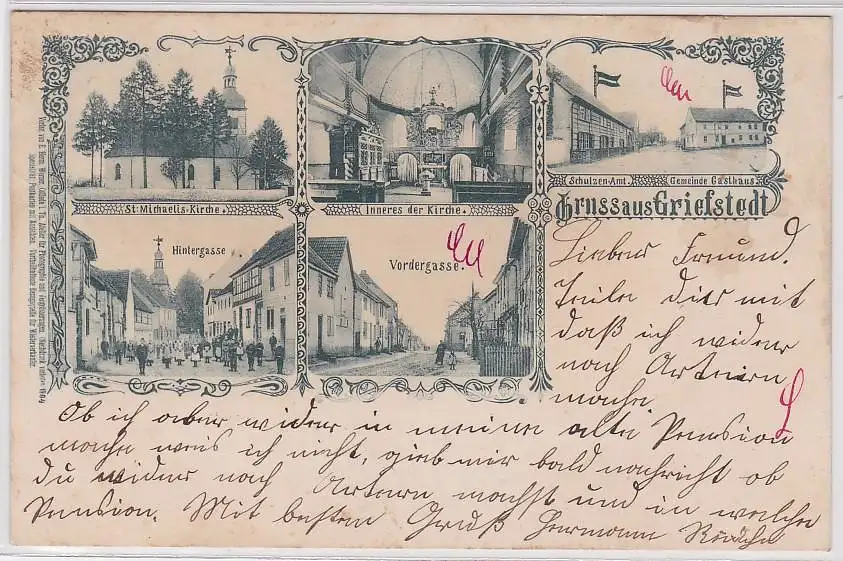 St. Michaelis-Kirche.
Inneres der Kirche.
Schulzen-Amt. Gemeinde Gasthaus
Gruss aus Griefstedt
Hintergasse
Vordergasse.
Lieber Freund.
Teile dir mit
daß ich wider
nach Artern
mache
Ob ich aber wider in meine alte Pension
mache weis ich nicht, gieb mir bald nachricht ob
du wider nach Artern machst und in welche
Pension. Mit bestem Gruß Hermann